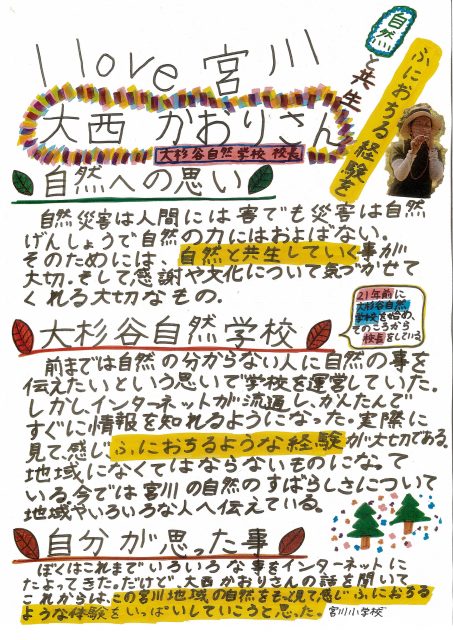 I love 宮川
自然
と共生
ふにおちる経験を
大西 かおりさん
大杉谷自然学校 校長
自然への思い
自然災害は人間には害でも災害は自然
げんしょうで自然の力にはおよばない。
そのためには、自然と共生していく事が
大切。そして感謝や文化について気づかせて
くれる大切なもの。
21年前に
大杉谷自然
学校を始め、
そのころから
校長をしている。
大杉谷自然学校
前までは自然の分からない人に自然の事を
伝えたいという思いで学校を運営していた。
しかし、インターネットが流通し、かんたんで
すぐに情報を知れるようになった。実際に
見て感じふにおちるような経験が大切である。
地域になくてはならないものになって
いる。今では宮川の自然のすばらしさについて
地域やいろいろな人へ伝えている。
自分が思った事
ぼくはこれまでいろいろな事をインターネットに
たよってきた。だけど、大西かおりさんの話を聞いて
これからは、この宮川地域の自然をもっと見て感じふにおちる
ような体験をいっぱいしていこうと思った。宮川小学校